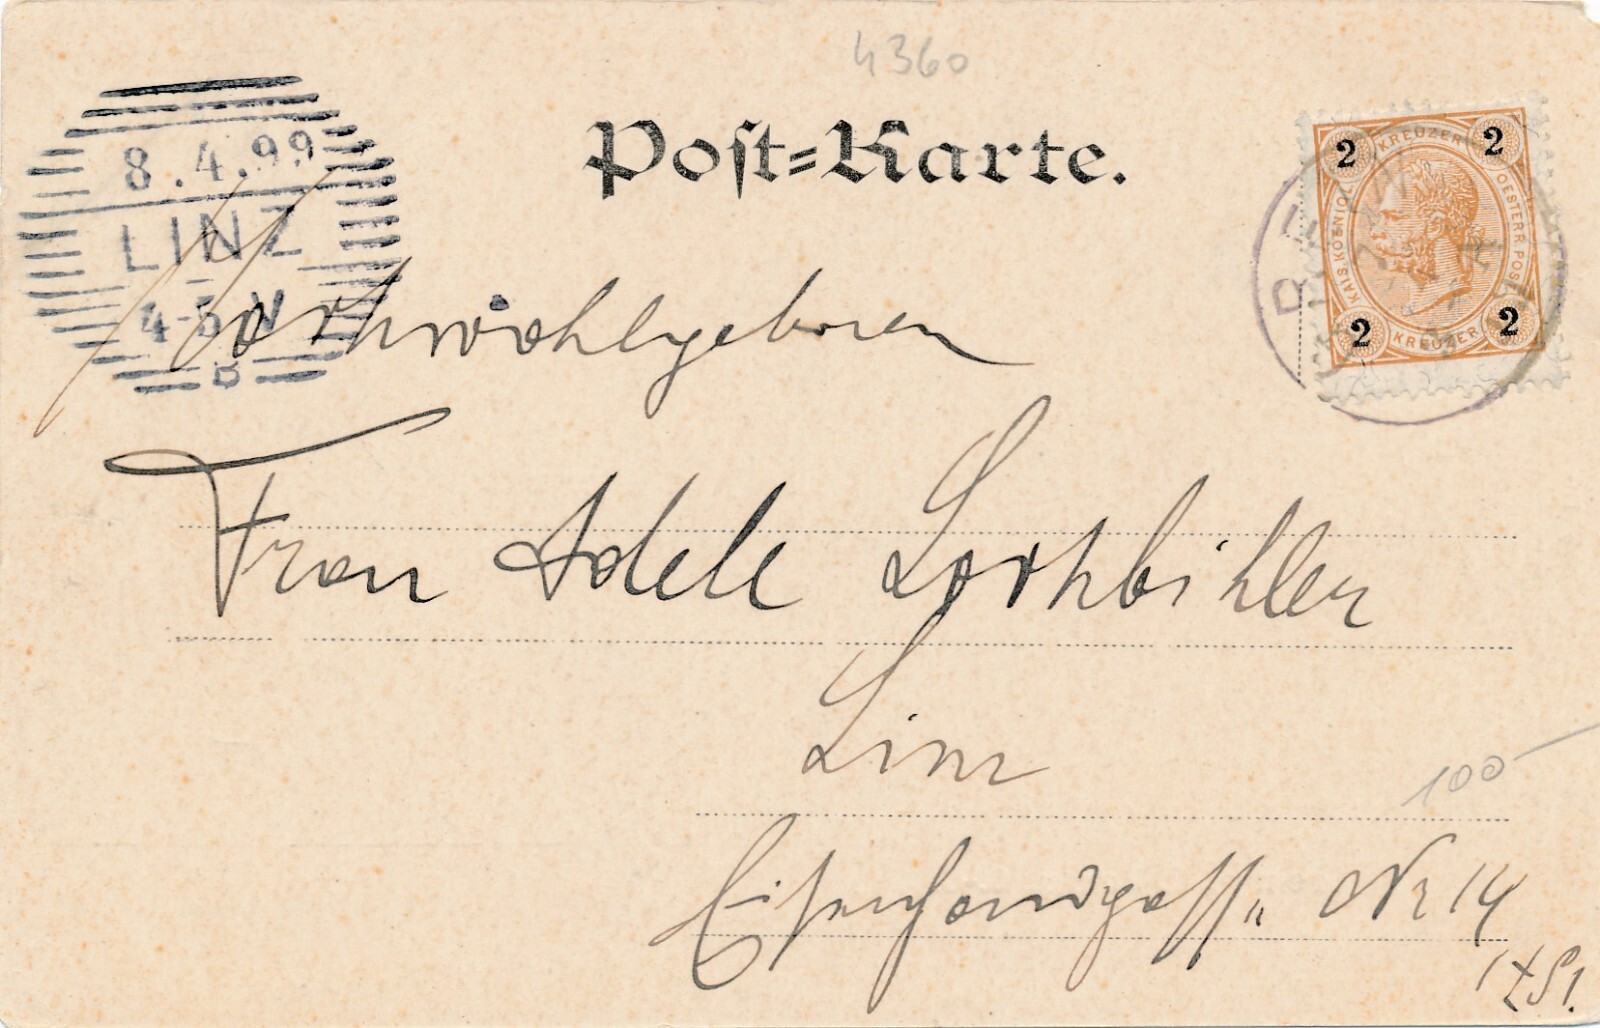 4360
Post-Karte.
8.4.99
LINZ
4-5 V
B
2 KREUZER 2
KAIS. KOENIGL. OESTERR. POST
2 KREUZER 2
Hochwohlgeboren
Frau Adele
Linz
100
Eisenhandgasse Nr 14